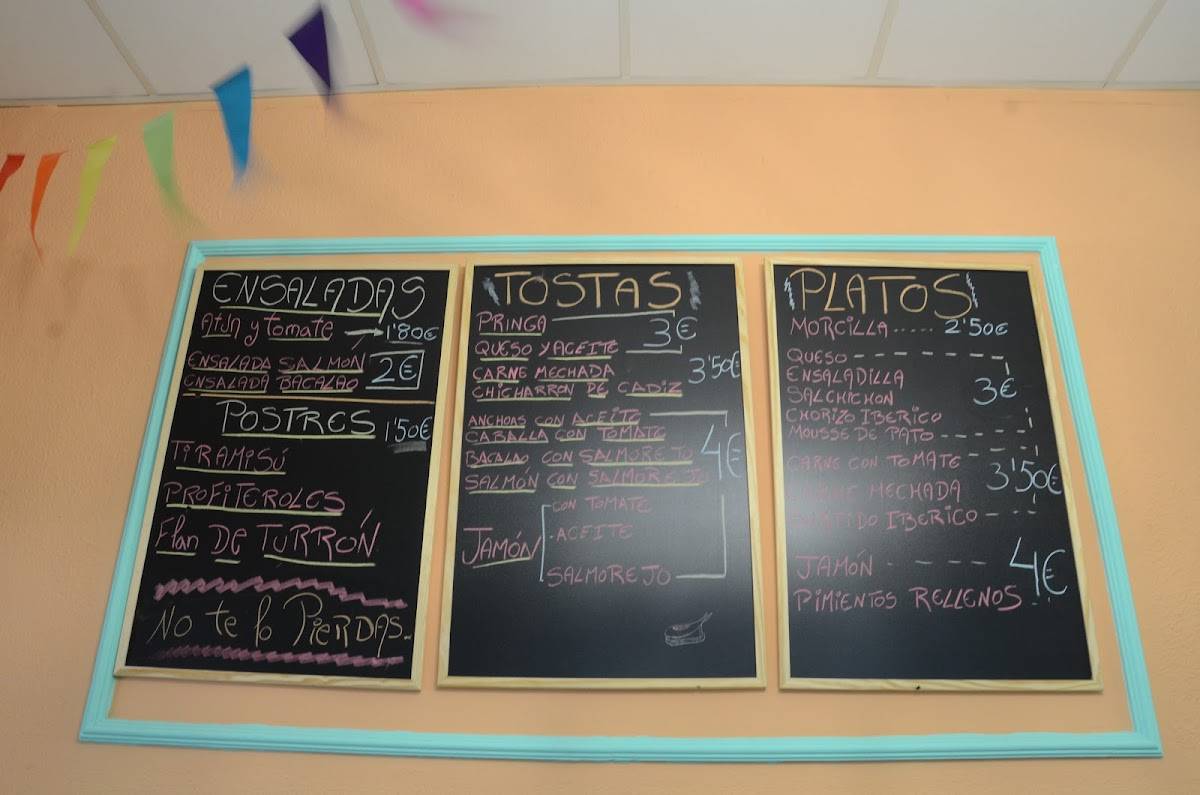 ENSALADAS
Atún y tomate 1'80€
ENSALADA SALMÓN
ENSALADA BACALAO 2€
POSTRES 1'50€
TIRAMISÚ
PROFITEROLES
Flan DE TURRÓN
No te lo PIERDAS.
TOSTAS
PRINGA 3€
QUESO Y ACEITE
CARNE MECHADA 3'50€
CHICHARRON DE CADIZ
ANCHOAS CON ACEITE
CABALLA CON TOMATE 4€
BACALAO CON SALMOREJO
SALMÓN CON SALMOREJO
CON TOMATE
JAMÓN ACEITE
SALMOREJO
PLATOS
MORCILLA ..... 2'50€
QUESO
ENSALADILLA
SALCHICHON 3€
CHORIZO IBERICO
MOUSSE DE PATO
CARNE CON TOMATE
MECHADA 3'50€
IBERICO
JAMÓN 4€
PIMIENTOS RELLENOS